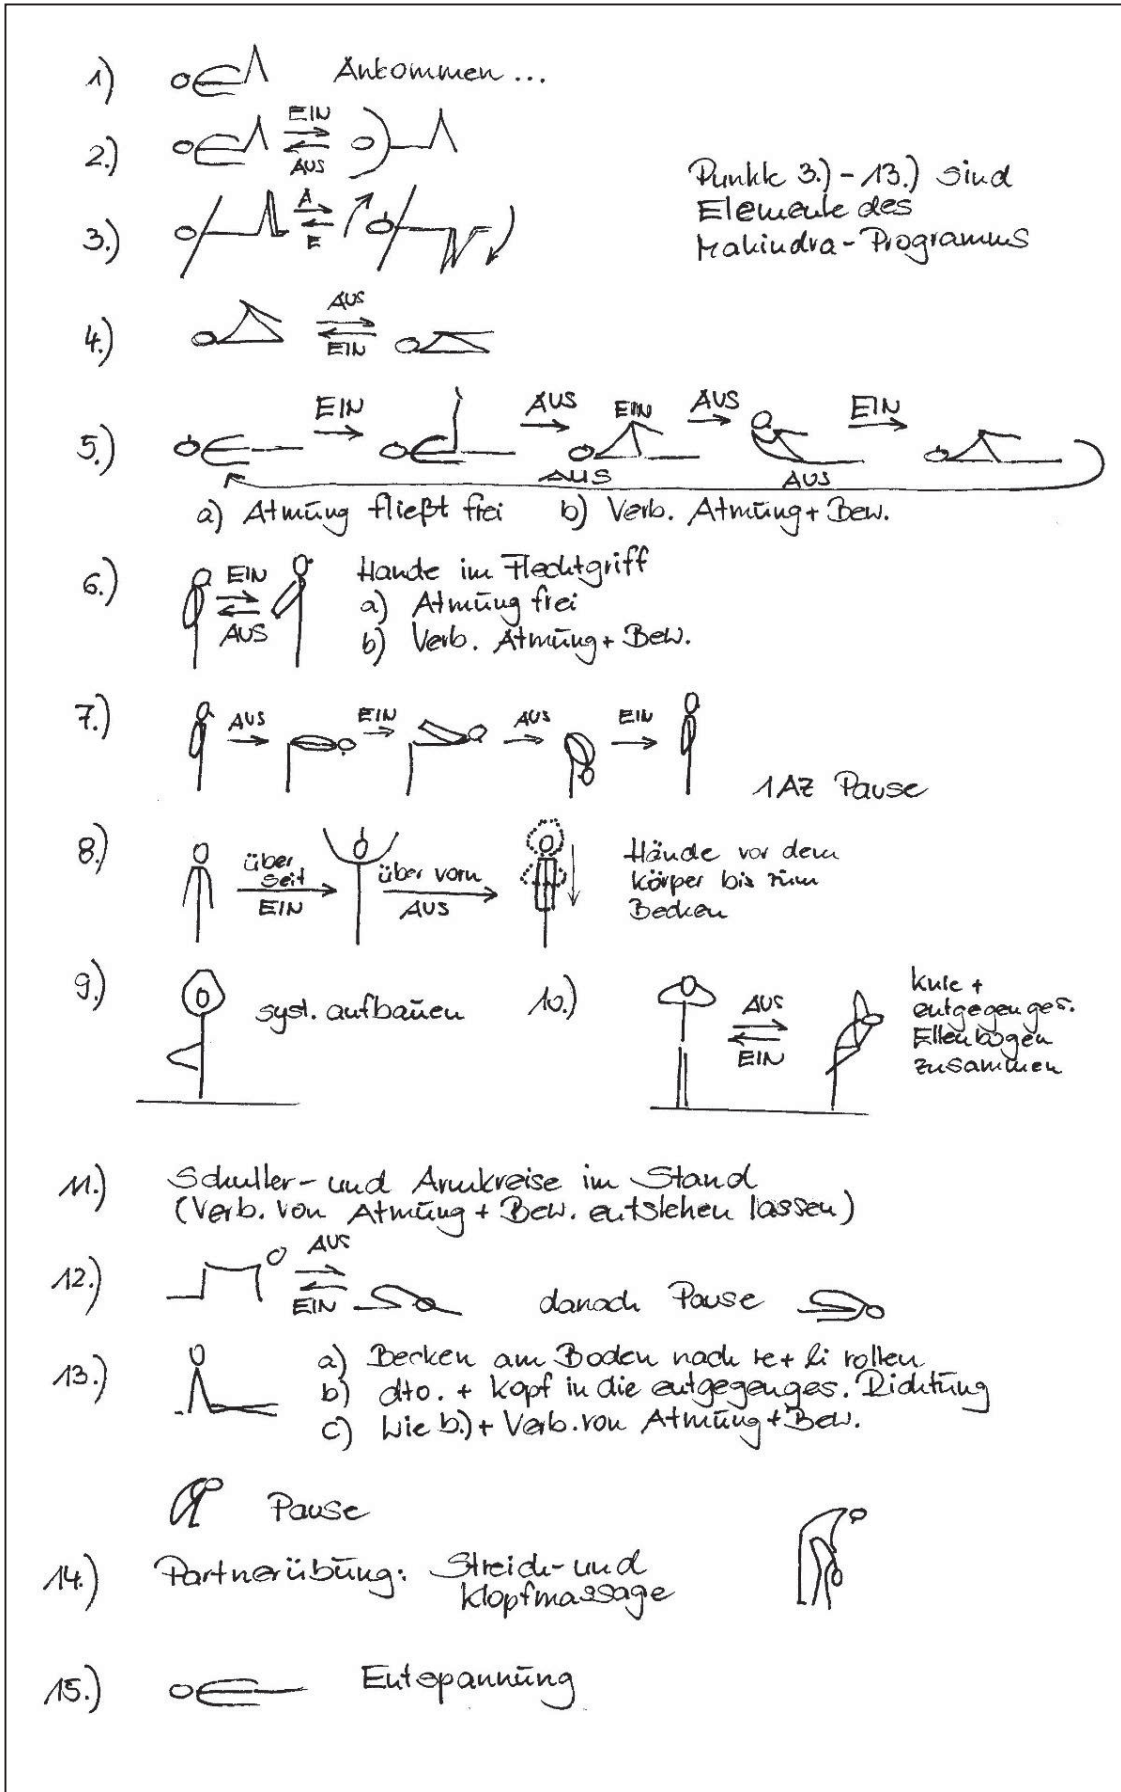 1) Ankommen ...
2.) EIN
AUS
Punkte 3.) - 13.) sind
Elemente des
Mahindra-Programms
3.) A
E
4.) AUS
EIN
5.) EIN AUS EIN AUS EIN
AUS AUS
a) Atmung fließt frei b) Verb. Atmung + Bew.
6.) EIN Hände im Flechtgriff
AUS a) Atmung frei
b) Verb. Atmung + Bew.
7.) AUS EIN AUS EIN
1 AZ Pause
8.) über
Seit
EIN
über vorn
AUS
Hände vor dem
Körper bis zum
Becken
9.) syst. aufbauen
10.) AUS
EIN
Knie +
entgegenges.
Ellenbogen
zusammen
11.) Schulter- und Armkreise im Stand
(Verb. von Atmung + Bew. entstehen lassen)
12.) AUS
EIN danach Pause
13.) a) Becken am Boden nach re + li rollen
b) dto. + Kopf in die entgegenges. Richtung
c) Wie b.) + Verb. von Atmung + Bew.
Pause
14.) Partnerübung: Streich- und
Klopfmassage
15.) Entspannung